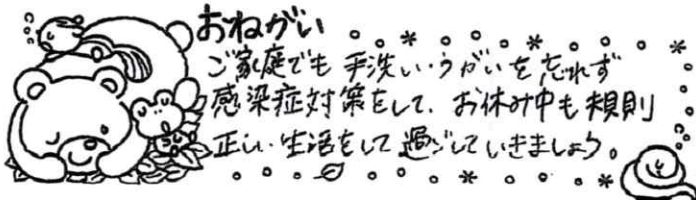 おねがい
ご家庭でも 手洗い・うがいを忘れず
感染症対策をして、お休み中も規則
正しい生活をして過ごしていきましょう。